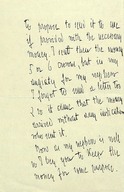 to prepare to send it to use
if provided with the necessary
money. I sent them the money
5 or 6 , but in my
anxiety for my nephew
I forgot to send a letter too
so it seems that the money
arrived without any indication
who sent it.
Now as my nephew is well
to I beg you to keep the
money for some purpose.